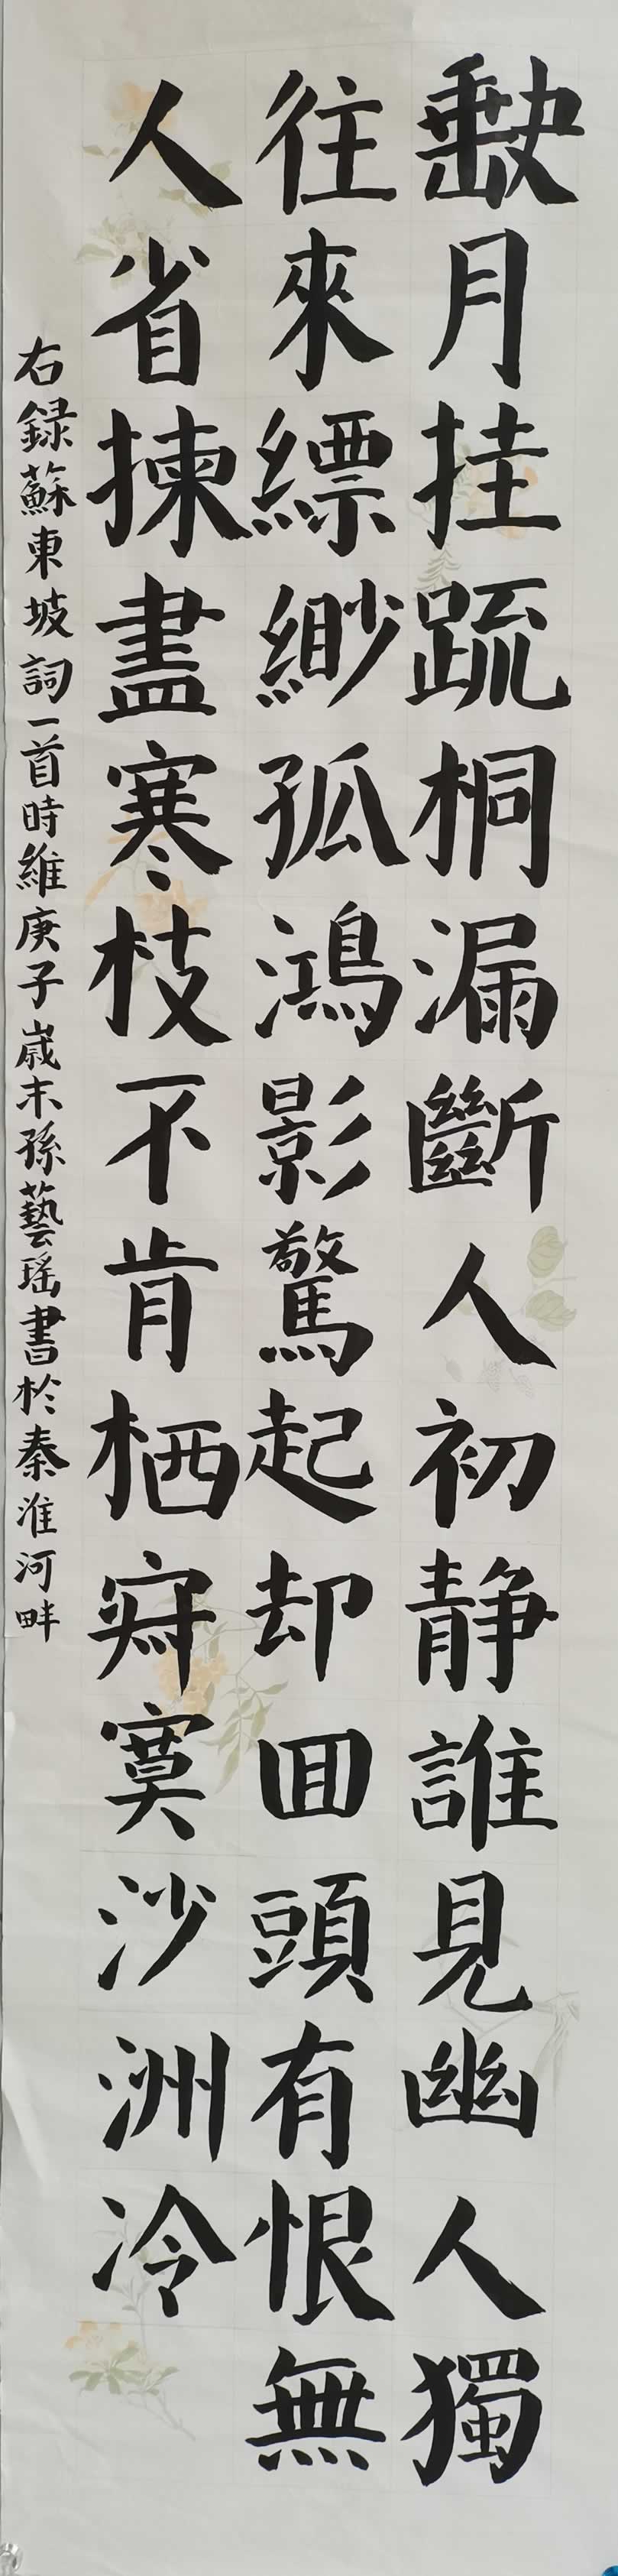 缺月挂疏桐漏斷人初静誰見幽人獨
往來縹緲孤鴻影驚起却回頭有恨無
人省揀盡寒枝不肯栖寂寞沙洲冷
右録蘇東坡詞一首時維庚子歲末孫藝瑶書於秦淮河畔